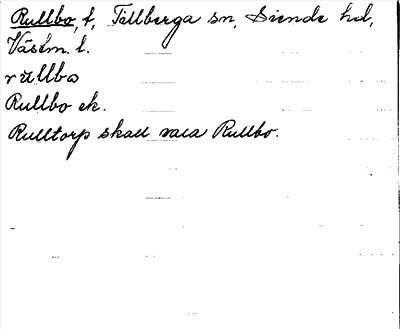 Rullbo, t, Tillberga sn, Siende hd,
Västm. l.
rullbo
Rullbo ek.
Rulltorp skall vara Rullbo.